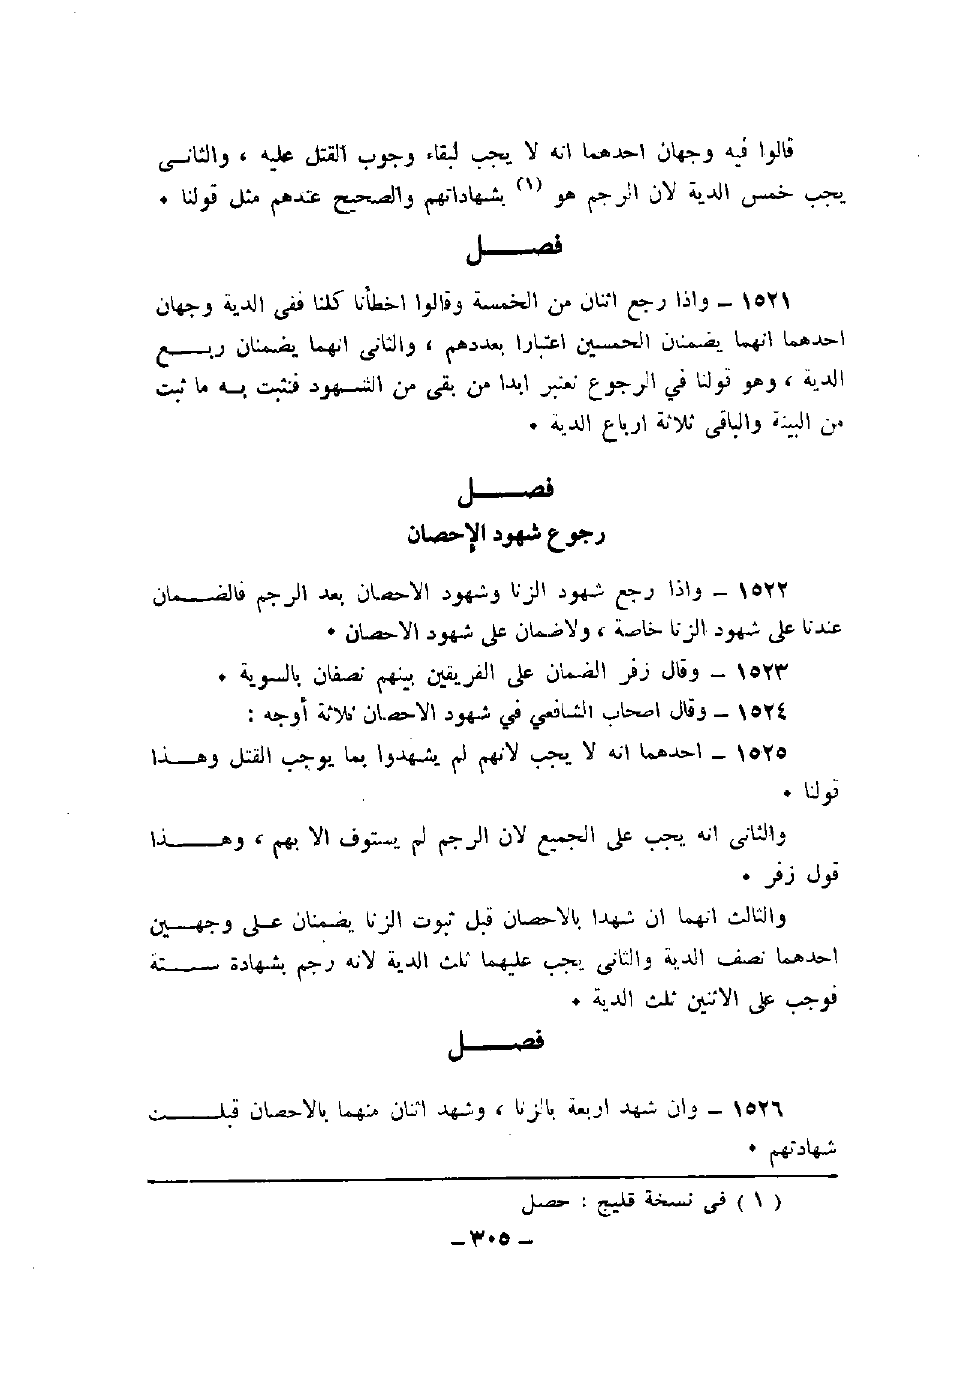 قالوا فيه وجهان احدهما انه لا يجب لبقاء وجوب القتل عليه ، والثانى
يجب خمس الدية لان الرجم هو (١) بشهاداتهم والصحيح عندهم مثل قولنا ٠
فصل
١٥٢١ ـ واذا رجع اثنان من الخمسة وقالوا اخطأنا كلنا ففى الدية وجهان
احدهما انهما يضمنان الخمسين اعتبارا بعددهم ، والثانى انهما يضمنان ربع
الدية ، وهو قولنا في الرجوع نعتبر ابدا من بقى من الشهود فنثبت به ما ثبت
من البينة والباقى ثلاثة ارباع الدية ٠
فصل
رجوع شهود الإحصان
١٥٢٢ ـ واذا رجع شهود الزنا وشهود الاحصان بعد الرجم فالضمان
عندنا على شهود الزنا خاصة ، ولاضمان على شهود الاحصان ٠
١٥٢٣ ـ وقال زفر الضمان على الفريقين بينهم نصفان بالسوية ٠
١٥٢٤ ـ وقال اصحاب الشافعي في شهود الاحصان ثلاثة أوجه :
١٥٢٥ ـ احدهما انه لا يجب لانهم لم يشهدوا بما يوجب القتل وهذا
قولنا ٠
والثانى انه يجب على الجميع لان الرجم لم يستوف الا بهم ، وهذا
قول زفر ٠
والثالث انهما ان شهدا بالاحصان قبل ثبوت الزنا يضمنان على وجهين
احدهما نصف الدية والثانى يجب عليهما ثلث الدية لانه رجم بشهادة ستة
فوجب على الاثنين ثلث الدية ٠
فصل
١٥٢٦ ـ وان شهد اربعة بالزنا ، وشهد اثنان منهما بالاحصان قبلت
شهادتهم ٠
( ١ ) فى نسخة قليج : حصل
ـ ٣٠٥ ـ